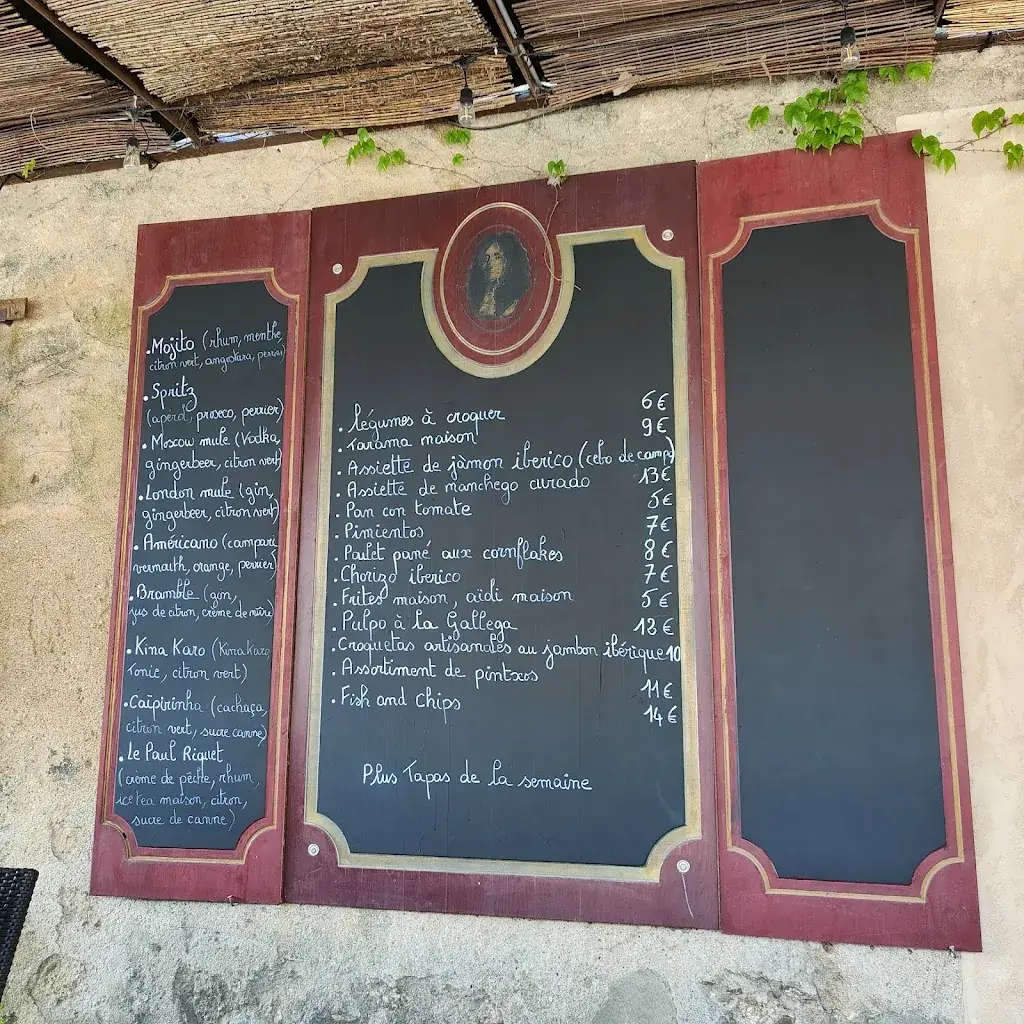 .Mojito (rhum, menthe,
citron vert, angostura, perrier)
.Spritz
(apérol, proseco, perrier)
.Moscow mule (Vodka,
gingerbeer, citron vert)
.London mule (gin,
gingerbeer, citron vert)
.Américano (campari
vermouth, orange, perrier)
.Bramble (gin,
jus de citron, crème de mûre)
.Kina Karo (Kina Karo
Tonic, citron vert)
.Caïpirinha (cachaça,
citron vert, sucre canne)
.Le Paul Riquet
(crème de pêche, rhum,
ice tea maison, citron,
sucre de canne)
. légumes à croquer 6€
. Tarama maison 9€
. Assiette de jàmon iberico (cebo de campo)
. Assiette de manchego curado 13€
. Pan con tomate 5€
. Pimientos 7€
. Poulet pané aux cornflakes 8€
. Chorizo iberico 7€
. Frites maison, aïoli maison 5€
. Pulpo à la Gallega 13€
. Croquetas artisanales au jambon ibérique 10
. Assortiment de pintxos 11€
. Fish and chips 14€
Plus Tapas de la semaine